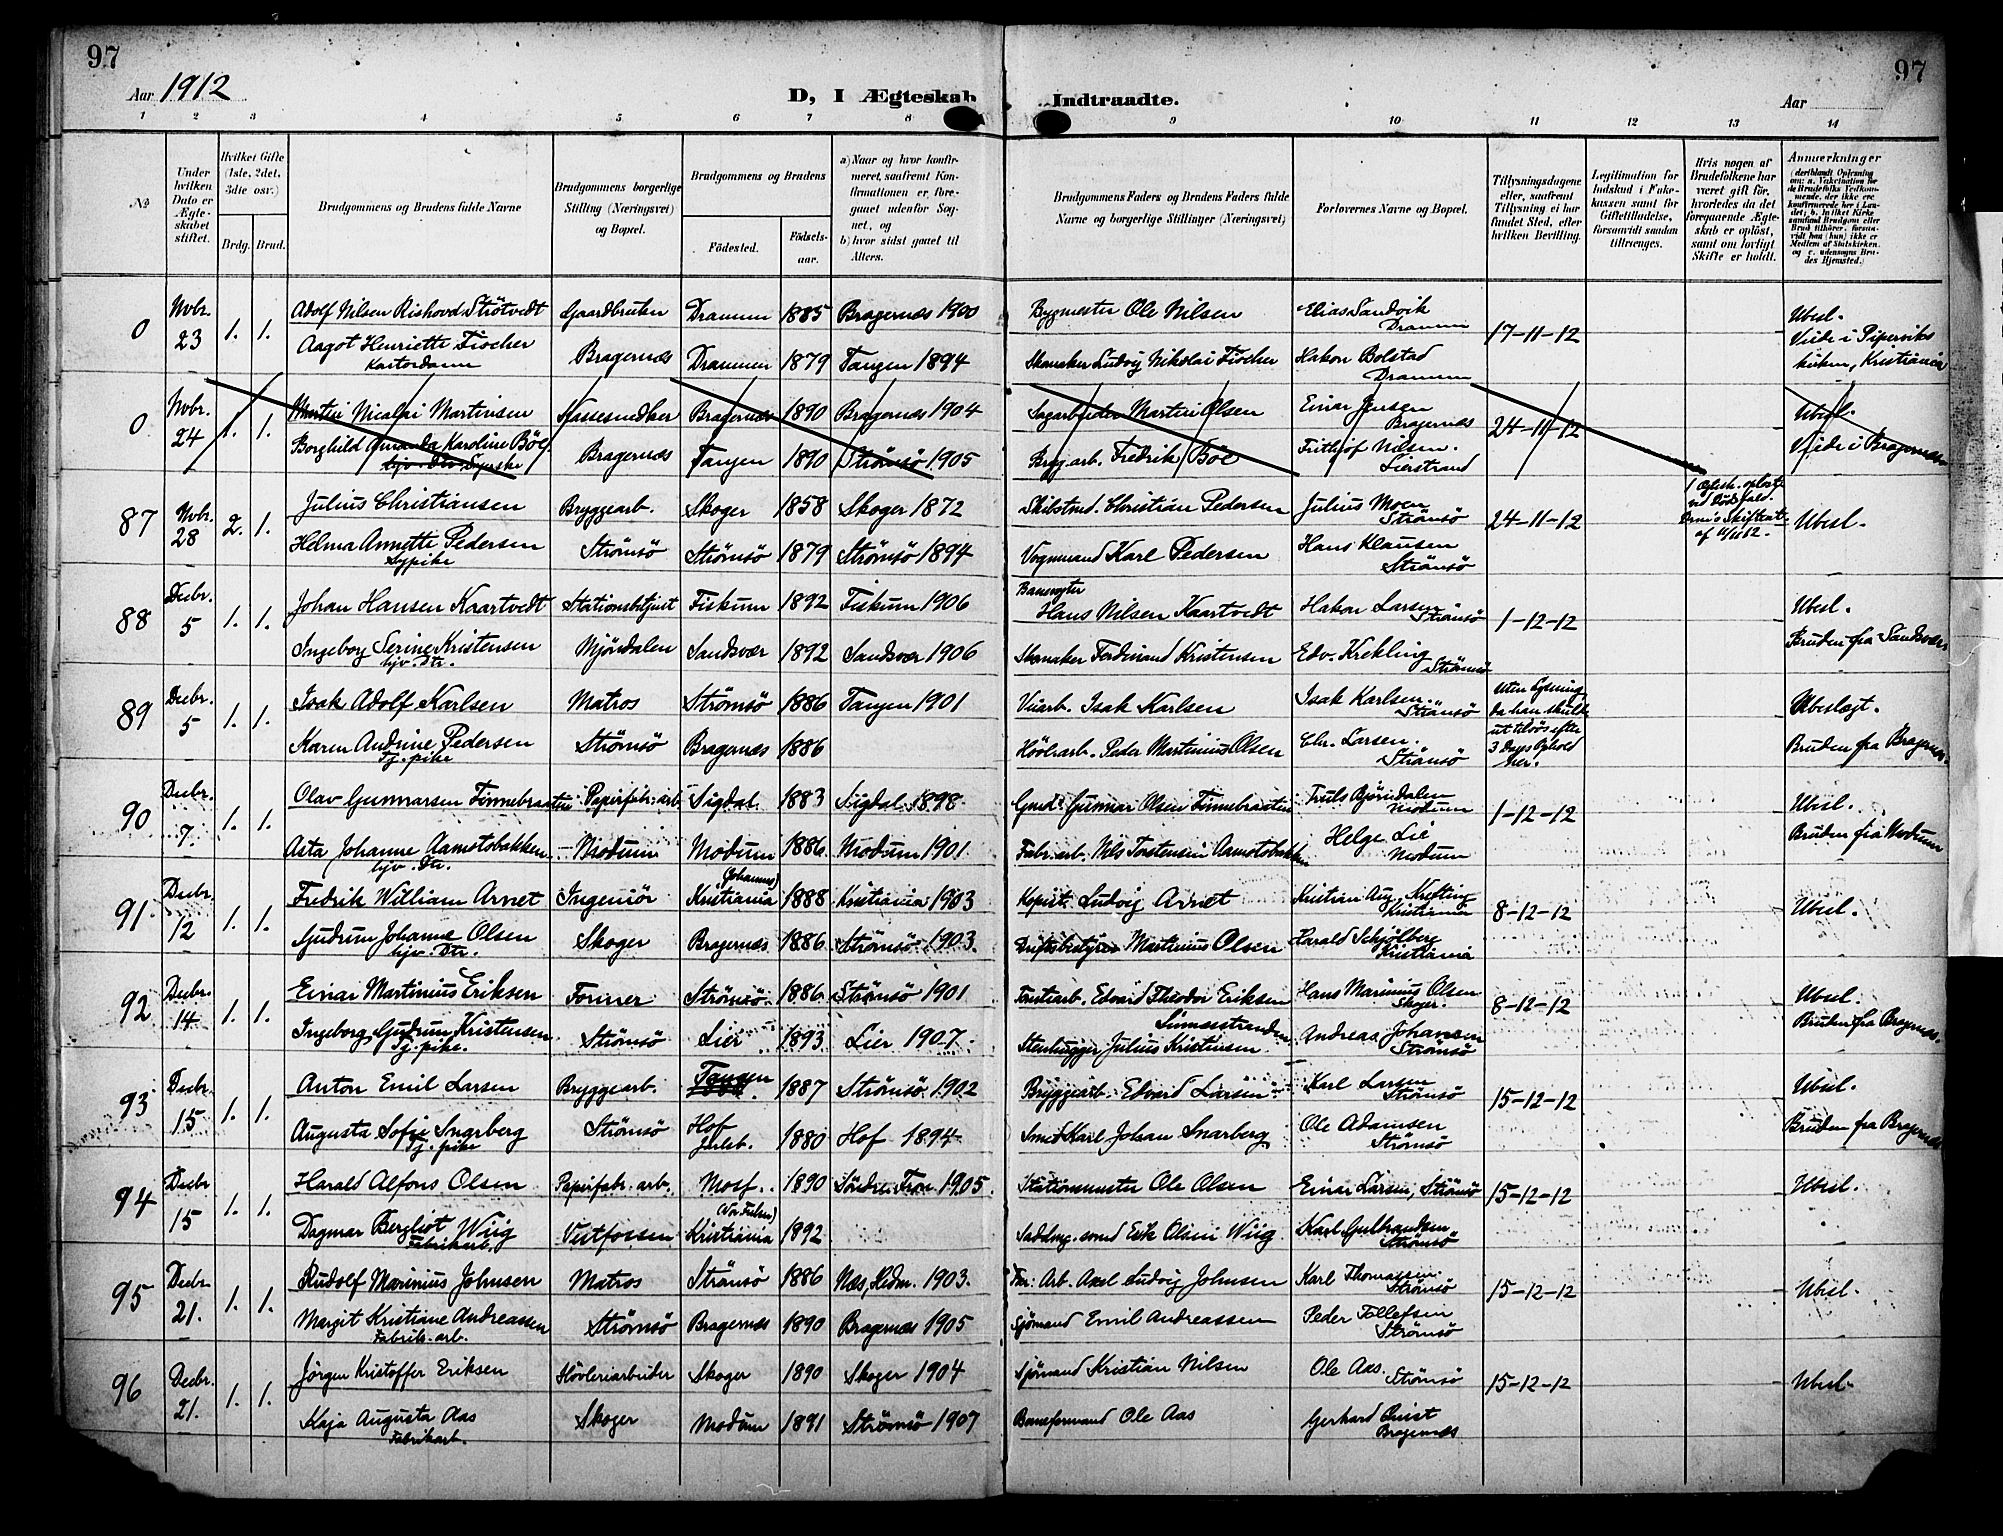 97
97
Aar 1912
D, I Ægteskab Indtraadte.
Aar
1 2 3 4 5 6 7 8 9 10 11 12 13 14
№
Under hvilken Dato er Ægteskabet stiftet.
Hvilket Gifte (1ste, 2det, 3die osv.)
Brdg. Brud.
Brudgommens og Brudens fulde Navne
Brudgommens borgerlige Stilling (Næringsvei) og Bopæl.
Brudgommens og Brudens
Fødested.
Fødselsaar.
a) Naar og hvor konfirmeret, saafremt Konfirmationen er foregaaet udenfor Sognet, og
b) hvor sidst gaaet til Alters.
Brudgommens Faders og Brudens Faders fulde Navne og borgerlige Stillinger (Næringsvei)
Forlovernes Navne og Bopæl.
Tillysningsdagene eller, saafremt Tillysning ei har fundet Sted, efter hvilken Bevilling.
Legitimation for Indskud i Fakkassen samt for Giftetilladelse, forsaavidt saadan tiltrænges.
Hvis nogen af Brudefolkene har været gift før, hvorledes da det foregaaende Ægteskab er opløst, samt om lovligt Skifte er holdt.
Anmærkninger
0 Novbr. 23 1. 1. Adolf Nilsen Rishovd Strøtvedt Gaardbruker Drammen 1885 Bragernæs 1900 Bygmester Ole Nilsen Elias Sandvik Drammen 17-11-12 Ubesl.
Aagot Henriette Fischer Bragernæs Drammen 1879 Tangen 1894 Skomaker Ludvig Nikolai Fischer Hakon Bolstad Drammen Viede i Piperviks kirken, Kristiania
0 Novbr. 24 1. 1. Martin Nicolai Martinsen Bragernæs 1890 Bragernæs 1904 Sagarbeider Martin Olsen Einar Jensen Bragernæs 24-11-12 Ubesl.
Borghild Amanda Karoline Böe hjv. Dtr. Syerske Bragernæs Tangen 1890 Strømsö 1905 Brygg.arb. Fredrik Böe Frithjof Nilsen. Lierstrand Viede i Bragernæs
87 Novbr. 28 2. 1. Julius Christiansen Bryggearb. Skoger 1858 Skoger 1872 Christian Pedersen Julius Moen Strömsö 24-11-12 Ubesl.
Helma Annette Pedersen Sypike Strömsö Strömsö 1879 Strömsö 1894 Vognmand Karl Pedersen Hans Klausen Strömsö
88 Decbr. 5 1. 1. Johan Hansen Kaartvedt Stationsbetjent Fiskum 1892 Fiskum 1906 Banevogter Hans Nilsen Kaartvedt Hakon Larsen Strömsö 1-12-12 Ubesl.
Ingeborg Serine Kristensen hjv. Dtr. Mjöndalen Sandsvær 1892 Sandsvær 1906 Skomaker Ferdinand Kristensen Edv. Krekling Strömsö Bruden fra Sandsvær
89 Decbr. 5 1. 1. Isak Adolf Karlsen Matros Strömsö 1886 Tangen 1901 Isak Karlsen Isak Karlsen. Strömsö Uten Lysning da han skulde ut tilsjös efter 3 Dages Ophold her. Ubeslagt.
Karen Andrine Pedersen Tj. pike Strömsö Bragernæs 1886 Hövlearb. Peder Martinius Olsen Chr. Larsen. Strömsö Bruden fra Bragernæs.
90 Decbr. 7. 1. 1. Olav Gunnarsen Finnebraaten Papirfabr. arb. Sigdal 1883 Sigdal 1898 Gmd. Gunnar Olsen Finnebraaten Truls Bjöndalen Modum 1-12-12 Ubesl.
Asta Johanne Aamotsbakken hjv. Dtr. Modum Modum 1886 Modum 1901 Fabr. arb. Nils Torstensen Aamotsbakken Helge Lie Modum Bruden fra Modum
91 Decbr. 12 1. 1. Fredrik William Arnet Ingeniör (Johannes) Kristiania 1888 Kristiania 1903 Kopist Ludvig Arnet Kristian Aug. Krefting Kristiania 8-12-12 Ubesl.
Gudrun Johanne Olsen hjv. Dtr. Skoger Bragernæs 1886 Strömsö 1903. Driftsbestyrer Martinius Olsen Harald Schjölberg Kristiania
92 Decbr. 14 1. 1. Einar Martinius Eriksen Former Strömsö 1886 Strömsö 1901 Edvard Theodor Eriksen Hans Marinius Olsen Skoger. 8-12-12 Ubesl.
Ingeborg Gudrun Kristensen Tj. pike. Strömsö Lier 1893 Lier 1907 Stenhugger Julius Kristensen Andreas Johansen Strömsö Bruden fra Bragernæs.
93 Decbr. 15 1. 1. Anton Emil Larsen Bryggearb. Tangen 1887 Strömsö 1902 Bryggearb. Edvard Larsen Karl Larsen Strömsö 15-12-12 Ubesl.
Augusta Sofie Snarberg Tj. pike Strömsö Hof Jarlsb. 1880 Hof 1894 Smed Karl Johan Snarberg Ole Adamsen Strömsö Bruden fra Bragernæs
94 Decbr. 15 1. 1. Harald Alfons Olsen Papirfabr. arb. Moss. 1890 Söndre Fron 1905. Stationsmester Ole Olsen Einar Larsen, Strömsö 15-12-12 Ubesl.
Dagmar Bergliot Wiig Fabrikarb. Vestfossen Kristiania 1892 Erik Olsen Wiig Karl Gulbrandsen Strömsö
95 Decbr. 21. 1. 1. Rudolf Marinius Johnsen Matros Strömsö 1886 Næs, Hedm. 1903. Arb. Axel Ludvig Johnsen Karl Thomassen Strömsö 15-12-12 Ubesl.
Margit Kristiane Andreassen Fabrik. arb. Strömsö Bragernæs 1890 Bragernæs 1905 Sjömand Emil Andreassen Peder Tollefsen Strömsö
96 Decbr. 21. 1. 1. Jörgen Kristoffer Eriksen Hövleriarbeider Skoger 1890 Skoger 1904 Sjömand Kristian Nilsen Ole Aas. Strömsö 15-12-12 Ubesl.
Kaja Augusta Aas Fabrikarb. Skoger Modum 1891 Strömsö 1907 Baneformand Ole Aas Gerhard Quist Bragernæs